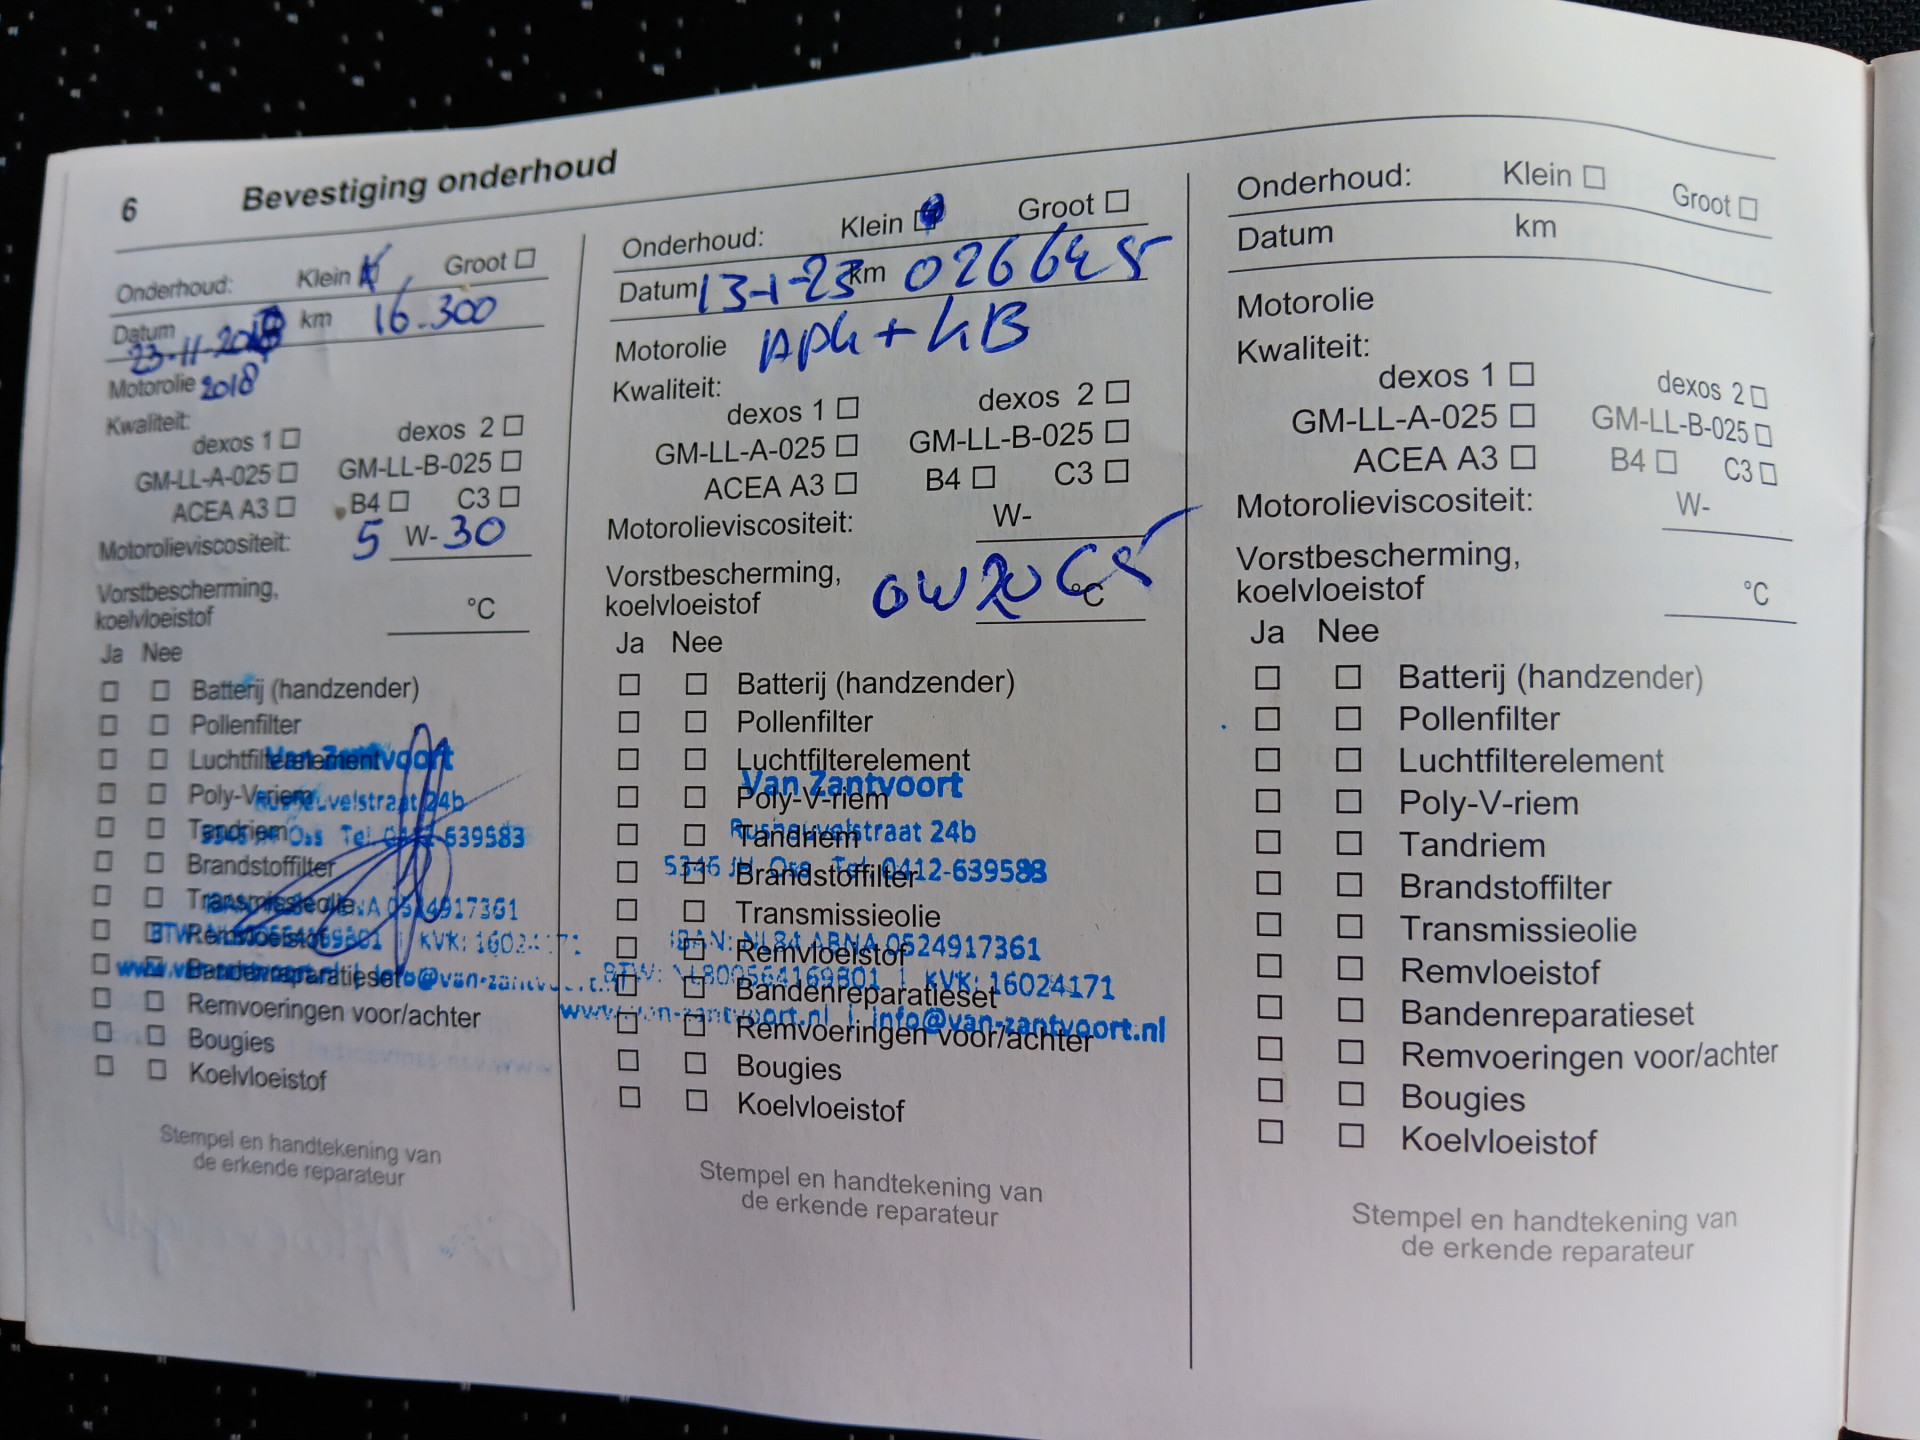 6 Bevestiging onderhoud
Onderhoud: Klein Groot
Datum 23-11- km 16.300
Motorolie 2018
Kwaliteit:
dexos 1 dexos 2
GM-LL-A-025 GM-LL-B-025
ACEA A3 B4 C3
Motorolieviscositeit: 5 W-30
Vorstbescherming,
koelvloeistof °C
Ja Nee
Batterij (handzender)
Pollenfilter
Luchtfilterelement
Van Zantvoort
Poly-V-riem
Rusheuvelstraat 24b
Tandriem
5346 JH Oss Tel. 0412-639583
Brandstoffilter
Transmissieolie
ABNA 0524917361
Remvloeistof
BTW: NL800564169B01 | KVK: 16024171
Bandenreparatieset
www.van-zantvoort.nl | info@van-zantvoort.nl
Remvoeringen voor/achter
Bougies
Koelvloeistof
Stempel en handtekening van
de erkende reparateur
Onderhoud: Klein Groot
Datum 13-1-23 km 026645
Motorolie APK + KB
Kwaliteit:
dexos 1 dexos 2
GM-LL-A-025 GM-LL-B-025
ACEA A3 B4 C3
Motorolieviscositeit: W-
Vorstbescherming,
koelvloeistof 0W20 C5 °C
Ja Nee
Batterij (handzender)
Pollenfilter
Luchtfilterelement
Van Zantvoort
Poly-V-riem
Rusheuvelstraat 24b
Tandriem
5346 JH Oss Tel. 0412-639583
Brandstoffilter
Transmissieolie
IBAN: NL84 ABNA 0524917361
Remvloeistof
BTW: NL800564169B01 | KVK: 16024171
Bandenreparatieset
www.van-zantvoort.nl | info@van-zantvoort.nl
Remvoeringen voor/achter
Bougies
Koelvloeistof
Stempel en handtekening van
de erkende reparateur
Onderhoud: Klein Groot
Datum km
Motorolie
Kwaliteit:
dexos 1 dexos 2
GM-LL-A-025 GM-LL-B-025
ACEA A3 B4 C3
Motorolieviscositeit: W-
Vorstbescherming,
koelvloeistof °C
Ja Nee
Batterij (handzender)
Pollenfilter
Luchtfilterelement
Poly-V-riem
Tandriem
Brandstoffilter
Transmissieolie
Remvloeistof
Bandenreparatieset
Remvoeringen voor/achter
Bougies
Koelvloeistof
Stempel en handtekening van
de erkende reparateur